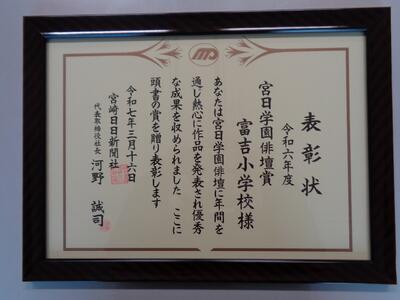 表彰状
令和六年度
宮日学園俳壇賞
富吉小学校様
あなたは宮日学園俳壇に年間を
通し熱心に作品を発表され優秀
な成果を収められました ここに
頭書の賞を贈り表彰します
令和七年三月十六日
宮崎日日新聞社
代表取締役社長 河野 誠司